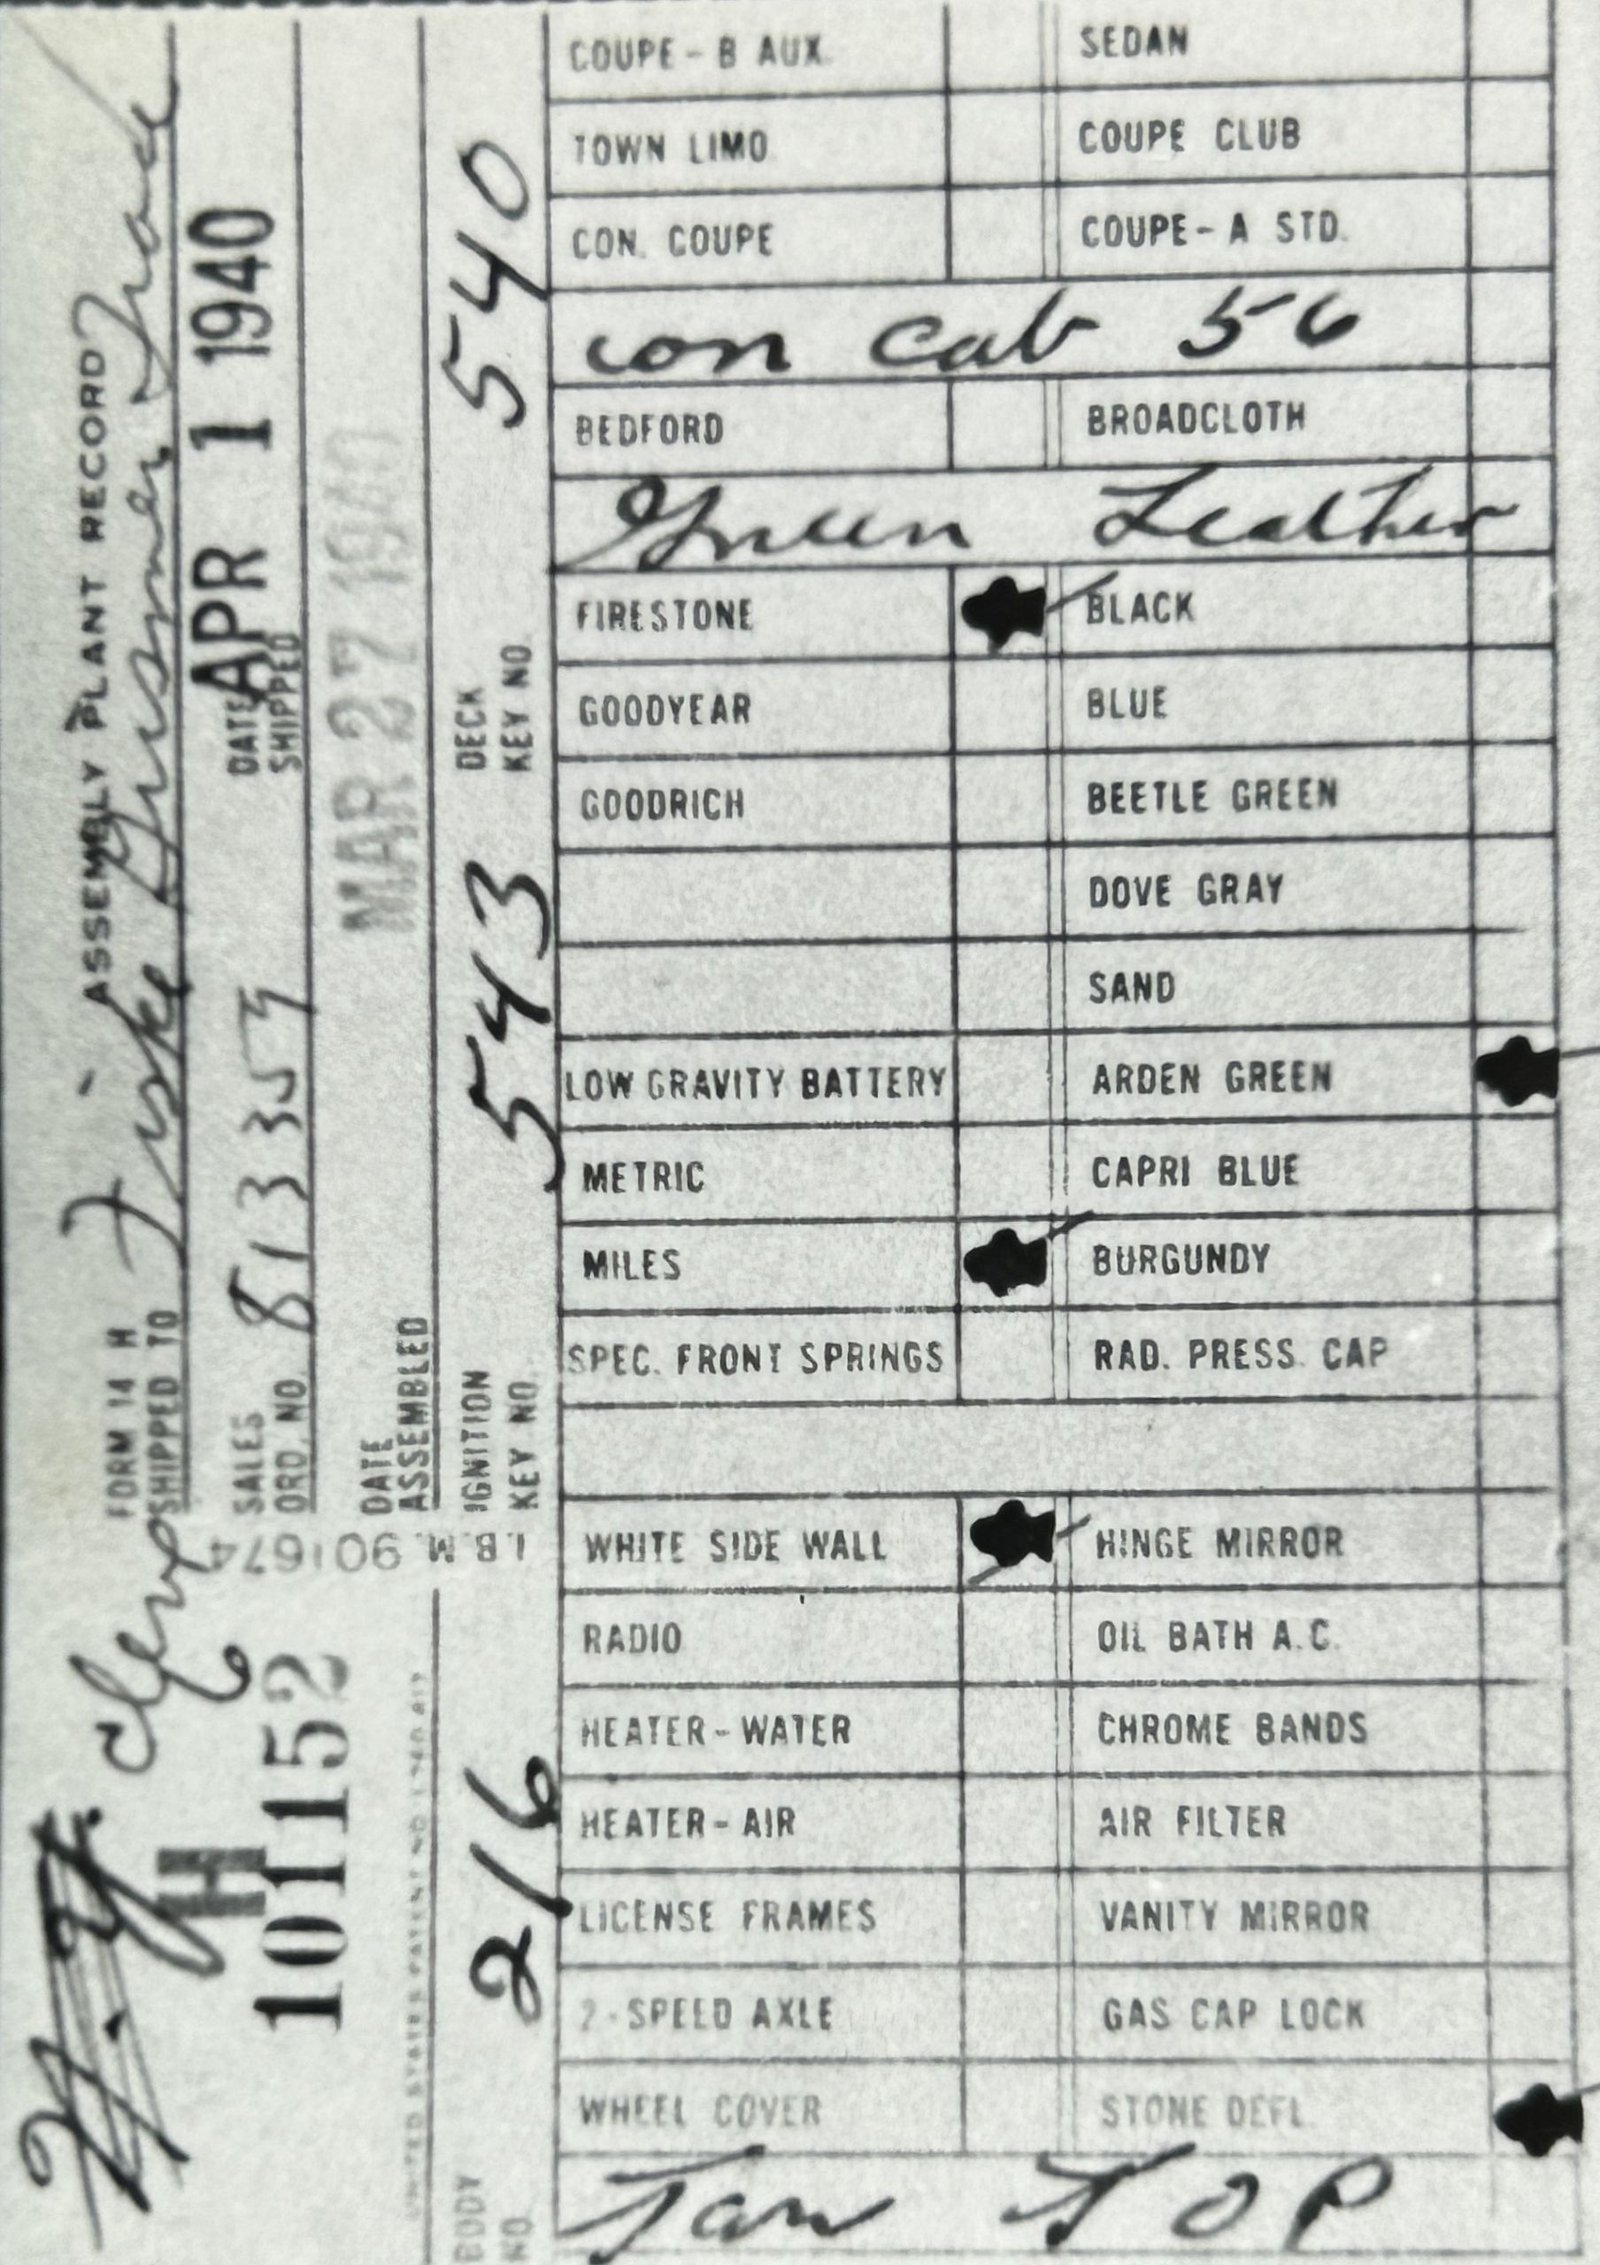 ASSEMBLY PLANT RECORD
FORM 14 H
SHIPPED TO Fiske
SALES ORD. NO. 813359
DATE SHIPPED APR 1 1940
DATE ASSEMBLED MAR 27 1940
IGNITION KEY NO. 543
DECK KEY NO. 540
I.B.M. 901674
H
101152
BODY NO. 216
COUPE - B AUX. SEDAN
TOWN LIMO COUPE CLUB
CON. COUPE COUPE - A STD.
con cab 56
BEDFORD BROADCLOTH
Green Leather
FIRESTONE BLACK
GOODYEAR BLUE
GOODRICH BEETLE GREEN
DOVE GRAY
SAND
LOW GRAVITY BATTERY ARDEN GREEN
METRIC CAPRI BLUE
MILES BURGUNDY
SPEC. FRONT SPRINGS RAD. PRESS. CAP
WHITE SIDE WALL HINGE MIRROR
RADIO OIL BATH A.C.
HEATER - WATER CHROME BANDS
HEATER - AIR AIR FILTER
LICENSE FRAMES VANITY MIRROR
2 - SPEED AXLE GAS CAP LOCK
WHEEL COVER STONE DEFL.
Tan TOP